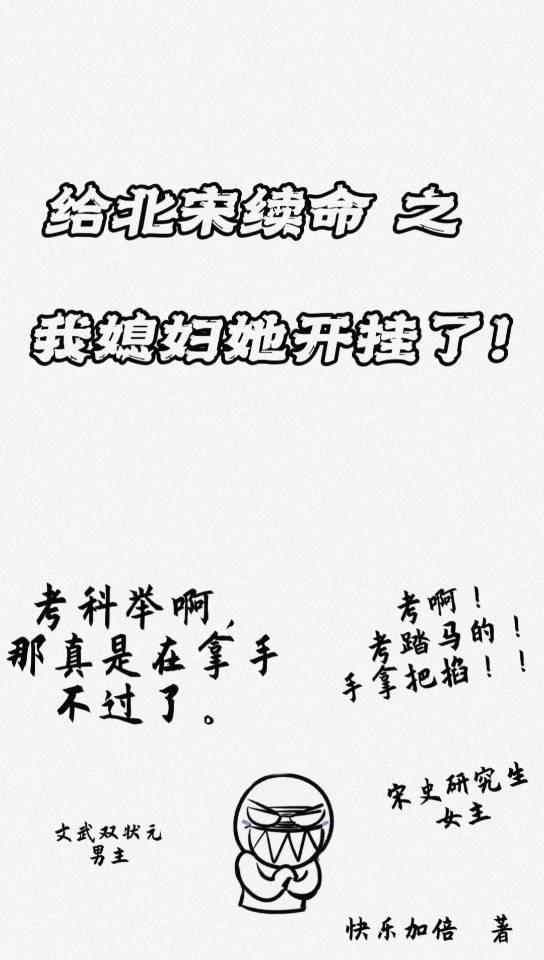 给北宋续命 之
我媳妇她开挂了!
考科举啊,
那真是在拿手
不过了。
考啊!
考踏马的!
手拿把掐!!
文武双状元
男主
宋史研究生
女主
快乐加倍 著